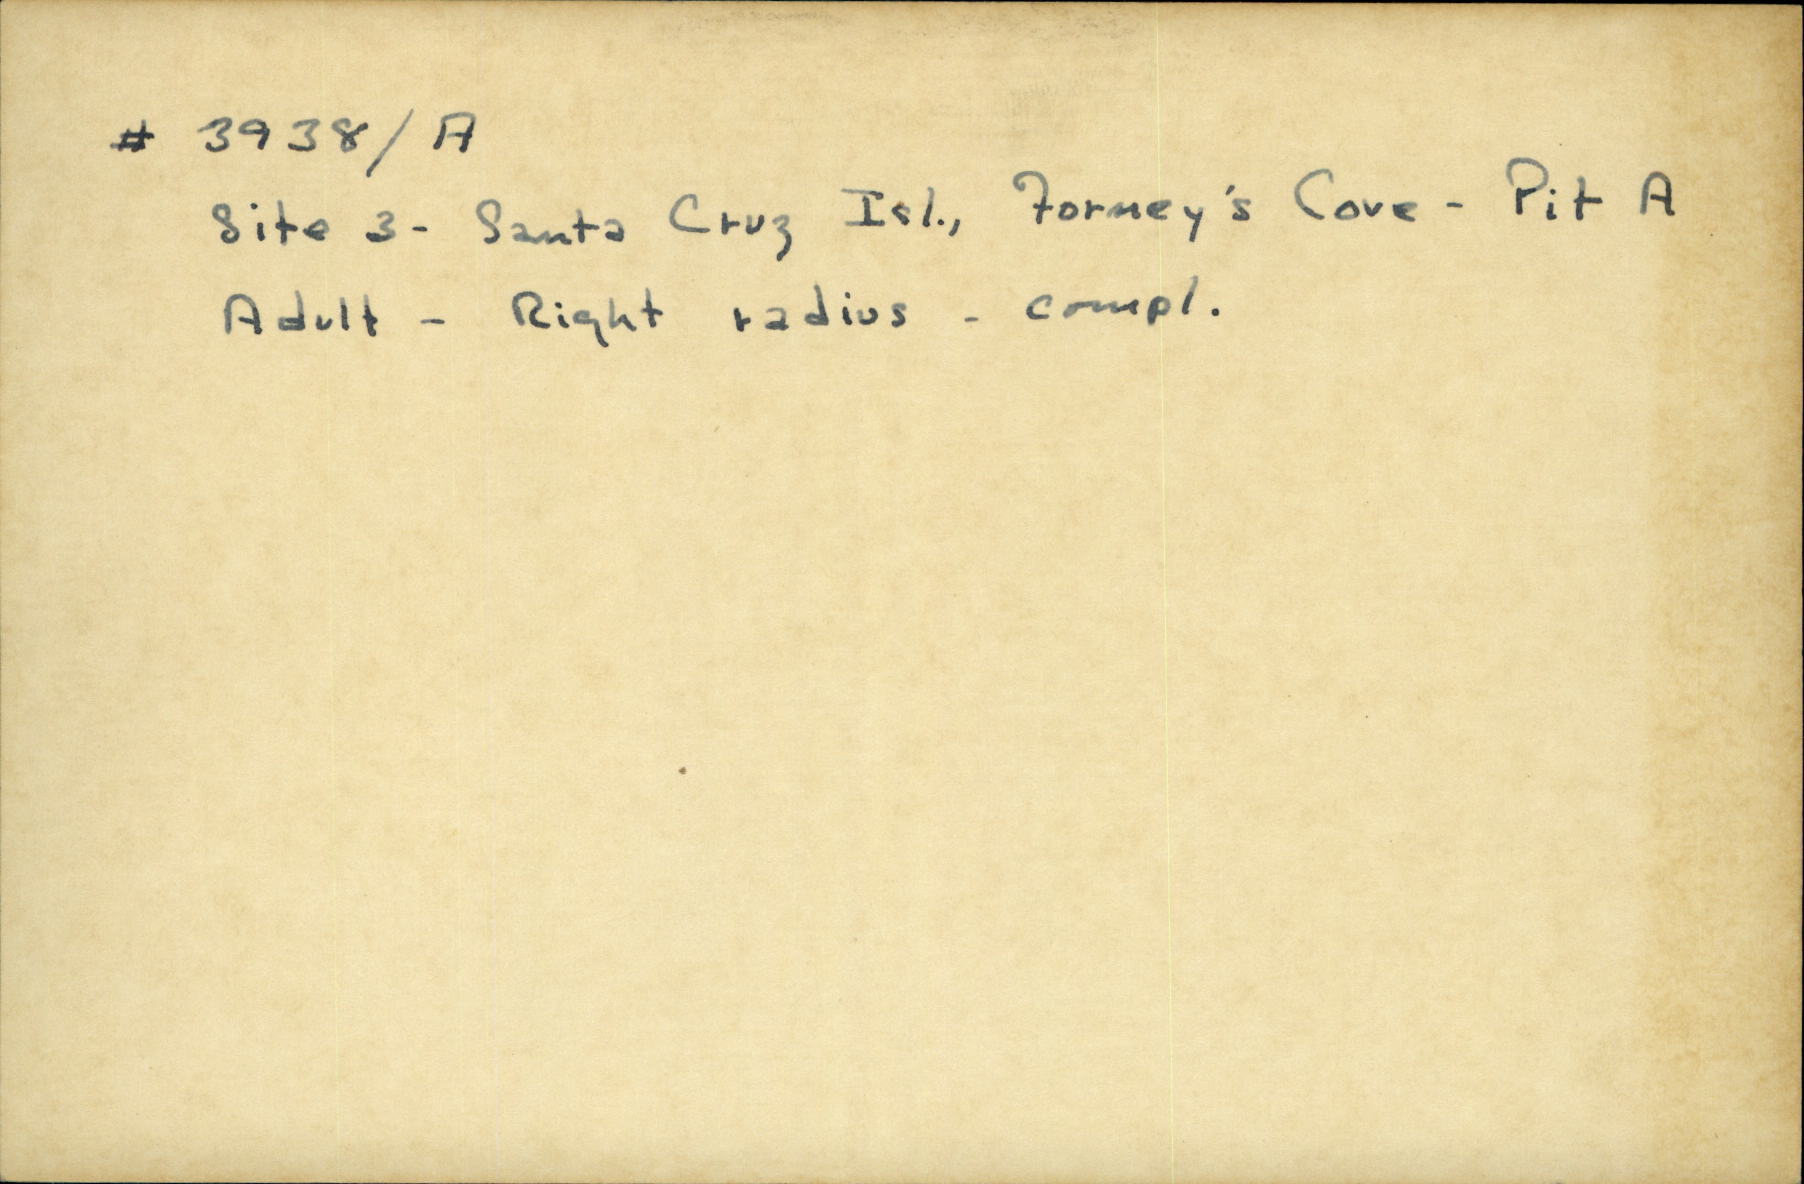 # 3938/A
Site 3 - Santa Cruz Isl., Forney's Cove - Pit A
Adult - Right radius - compl.